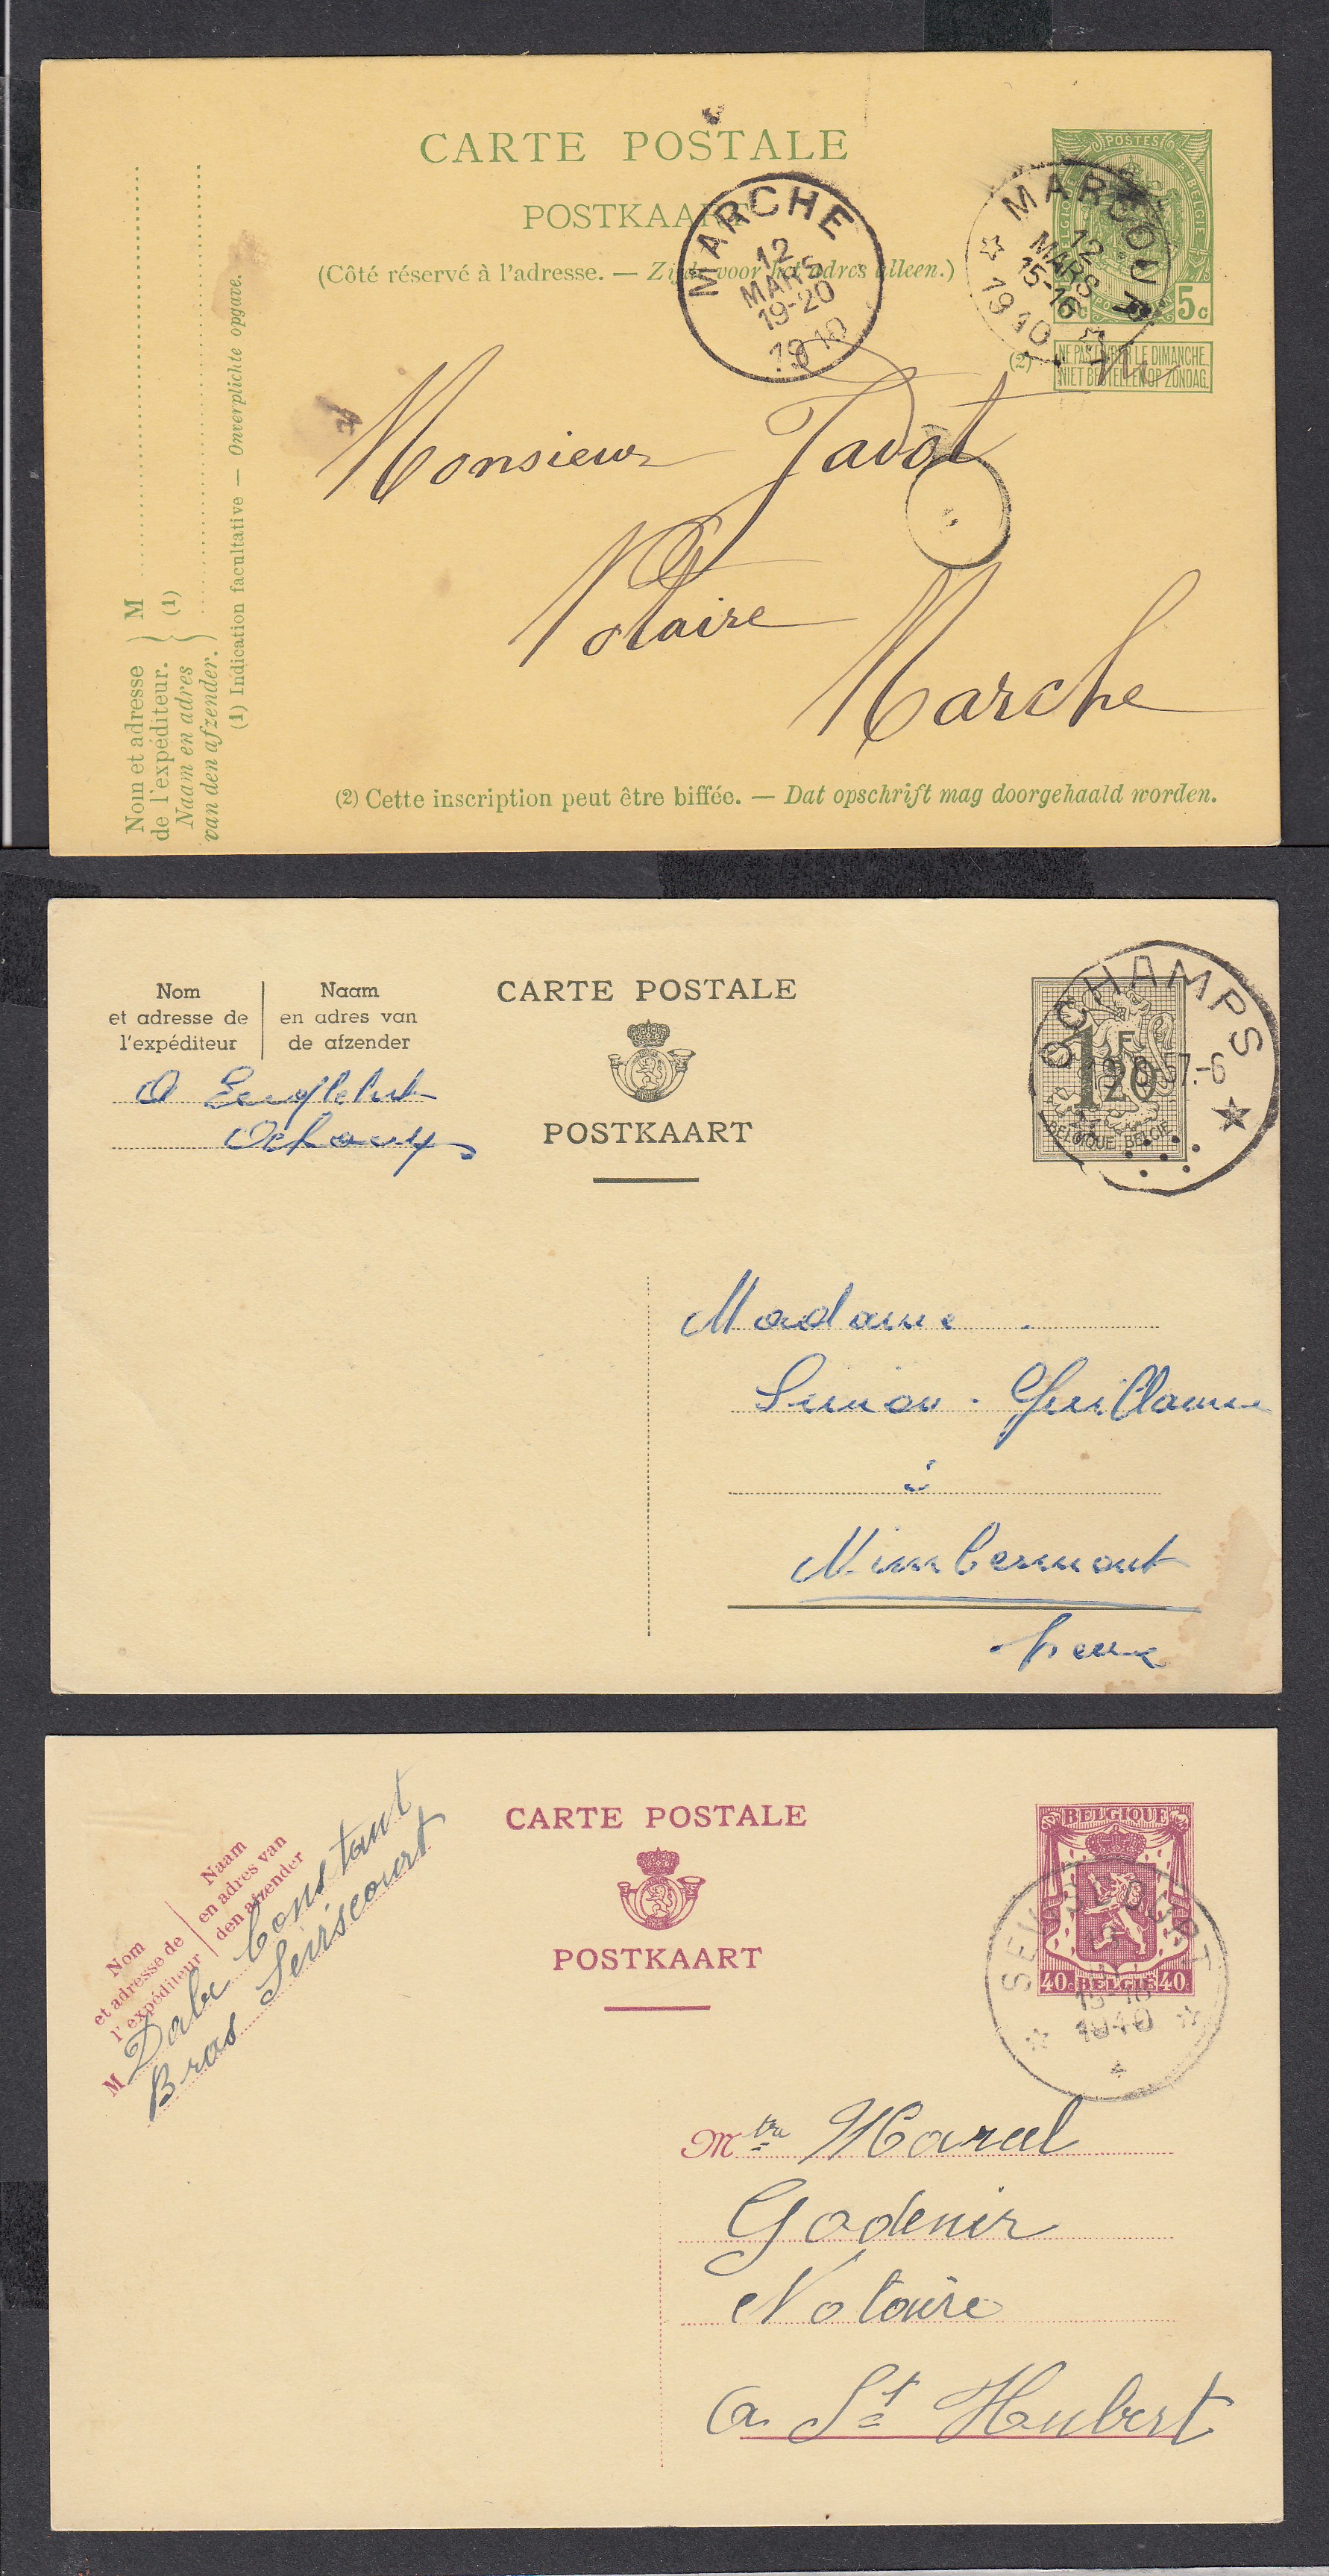 CARTE POSTALE
POSTKAART
(Côté réservé à l'adresse. — Zijde voor het adres alleen.)
MARCHE
12
MARS
19-20
1910
MARCOUR
12
MARS
15-16
1910
POSTES
BELGIQUE
BELGIE
5c
(2)
NE PAS LIVRER LE DIMANCHE.
NIET BESTELLEN OP ZONDAG.
Monsieur Javot
Notaire
Marche
Nom et adresse
de l'expéditeur.
Naam en adres
van den afzender.
M
(1)
(1) Indication facultative — Onverplichte opgave.
(2) Cette inscription peut être biffée. — Dat opschrift mag doorgehaald worden.
Nom
et adresse de
l'expéditeur
Naam
en adres van
de afzender
Ochamps
CARTE POSTALE
POSTKAART
1F20
BELGIQUE BELGIE
OCHAMPS
57.-6
Madame
Simon-Guillaume
à
CARTE POSTALE
POSTKAART
Nom
et adresse de
l'expéditeur
Naam
en adres van
den afzender
M
Constant
Bras Seviscourt
BELGIQUE
40c BELGIE 40c
SEVISCOURT
13
1940
M Marcel
Godenir
Notaire
a St Hubert